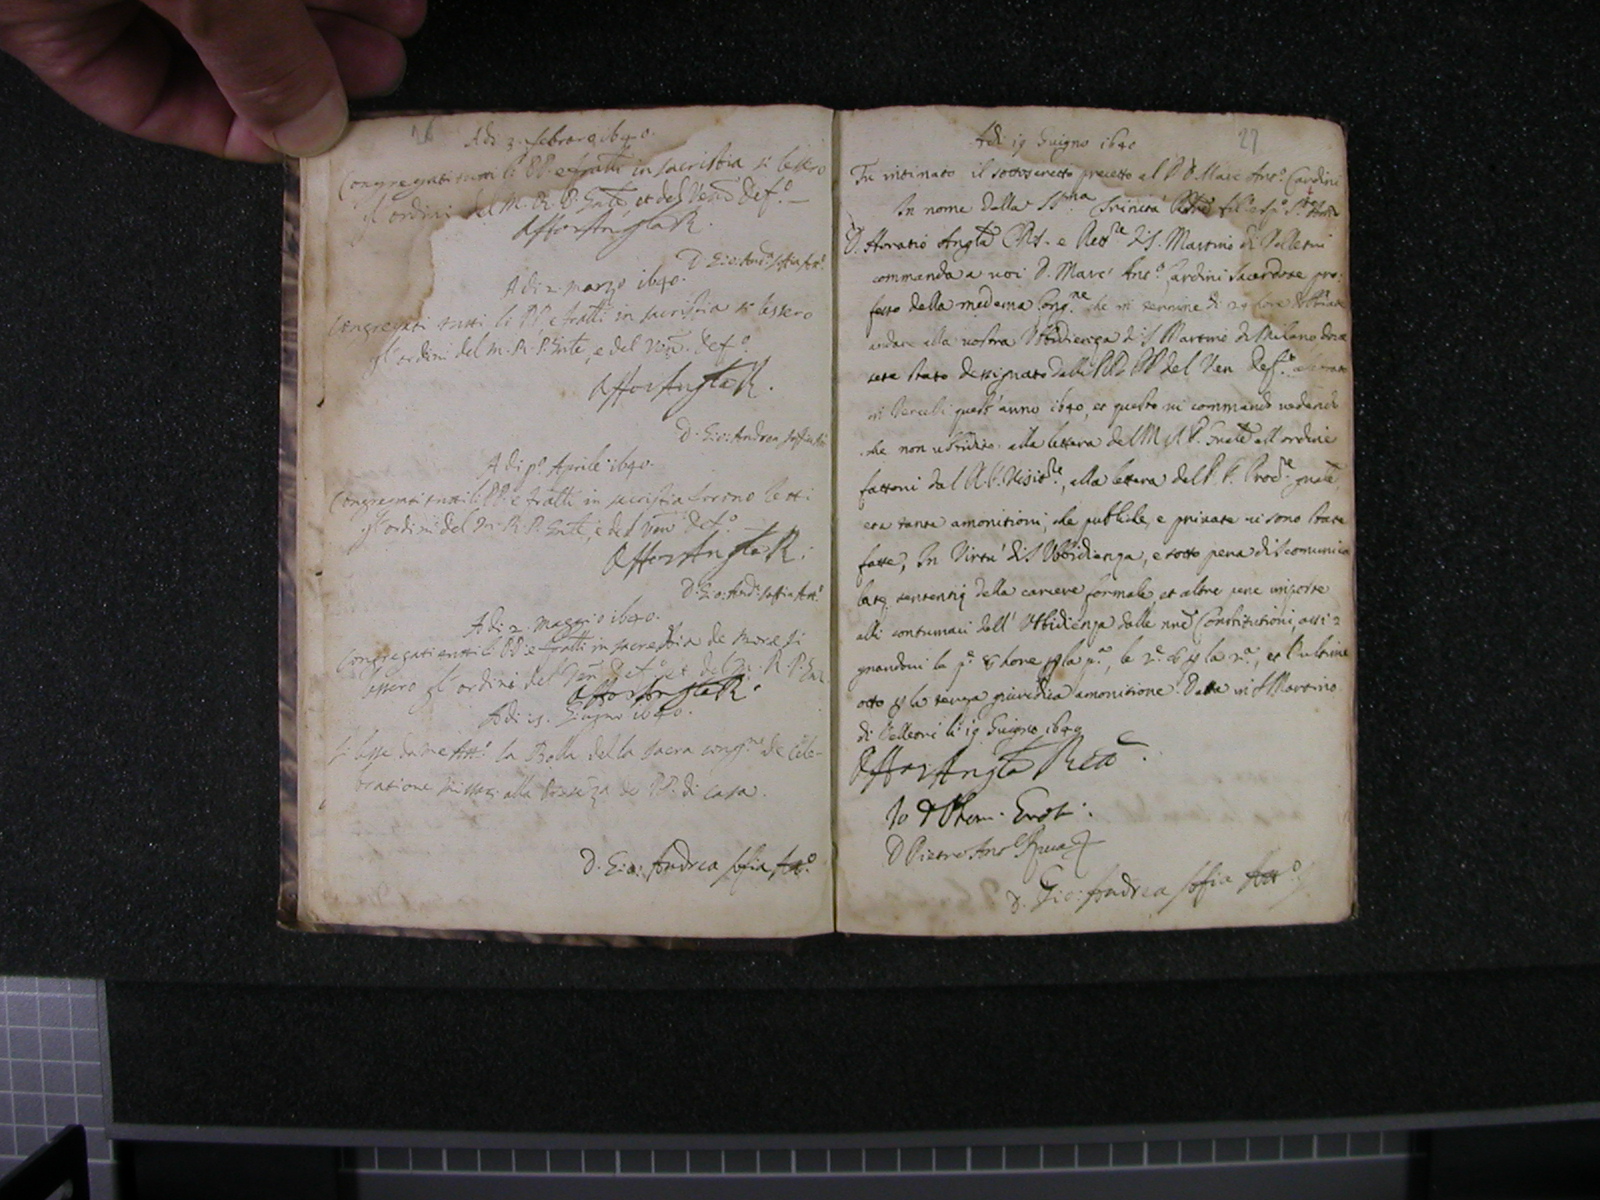 26
A di 3. febraro 1640.
Congregati tutti li PP. e fratelli in sacristia si lessero
gl'ordini del M. R. P. Gnle et del Ven. Def.º
A di 2. marzo 1640.
D. Gio: Andª sofia Attº
Congregati tutti li PP. e fratelli in sacristia si lessero
gl'ordini del M. R. P. Gnle, e del Ven. Def.º
D. Gio: Andrea sofia
A di pº Aprile 1640.
Congregati tutti li PP. e fratelli in sacristia forono letti
gl'ordini del M. R. P. Gnle, e del Ven. Def.º
D. Gio: Andª sofia Attº
A di 2. maggio 1640.
Congregati tutti li PP. e fratelli in sacrestia de more si
lessero gl'ordini del Ven. Def.º et del M. R. P. Gnl.
A di 15. Giugno 1640.
Si lesse da me Attº la Bolla della sacra congne de Cele-
bratione missarū alla presenza de PP. di casa.
D. Gio: Andrea sofia Attº
27
Adi 19 Giugno 1640
Fu intimato il sottoscritto precetto al P. D. Marc Antº Cardini
In nome della SSma Trinità
D. Horatio Angla CRS. e Rettre di S. Martino di Velletri
commanda a voi D. Marc' Antº Cardini sacerdote pro-
fesso della medema Congne che in termine di 24 hore
andare alla vostra Ubidienza di S. Martino di Milano dove
sete stato dessignato dalli PP. del Ven. Def.º
in Vercelli quest'anno 1640, et questo vi commando vedendo
che non ubidite alla lettera del M. R. P. Gnale all'ordine
fattovi dal R. P. Visitre, alla lettera del P. P. Procre gnale,
et a tante amonitioni, che publiche, e private vi sono state
fatte, In Virtù di S. Ubbidienza, e sotto pena di scomunica
latę sententię della carcere formale et altre pene imposte
alli contumaci dell'Ubidienza dalle nre Constitutioni, assi-
gnandovi le pe 8 hore p la pa, le 2e 8 p la 2a, et l'ultime
otto p la terza giuridica amonitione. Data in S. Martino
di Velletri li 19 Giugno 1640
D. Gio: Andrea sofia Attº